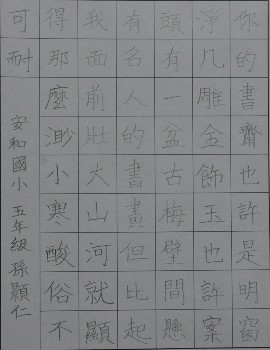 你的書齋也許是明窗
淨几雕金飾玉也許案
頭有一盆古梅壁間懸
有名人的書畫但比起
我面前壯大山河就顯
得那麼渺小寒酸俗不
可耐
安和國小 五年級 孫顥仁